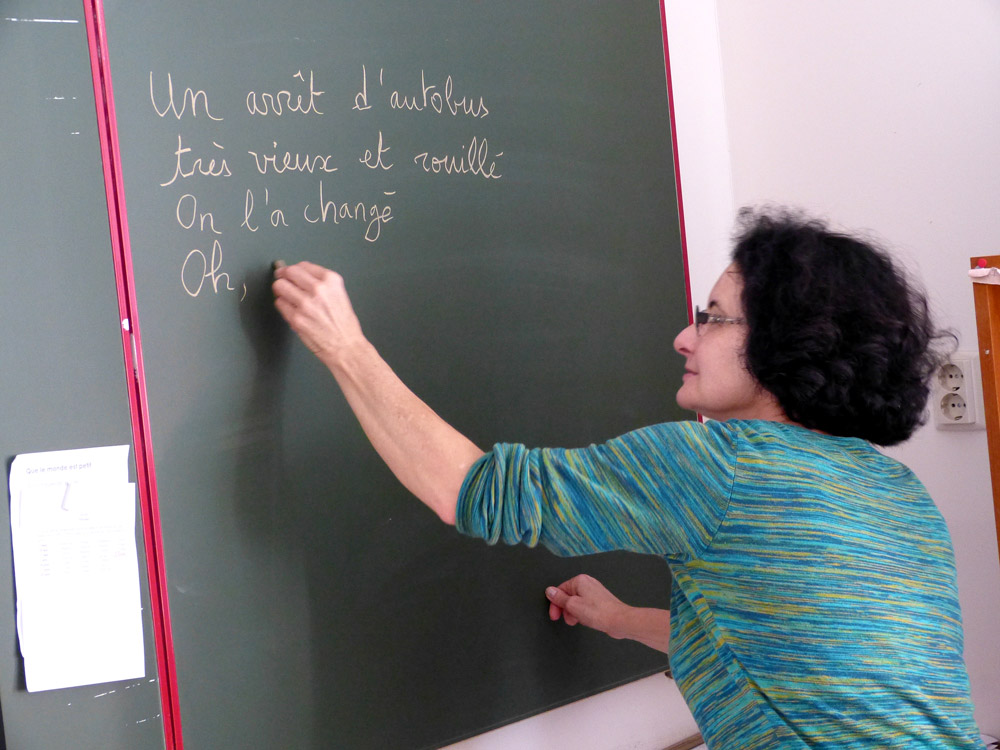 Un arrêt d'autobus
très vieux et rouillé
On l'a changé
Oh,
Que le monde est petit